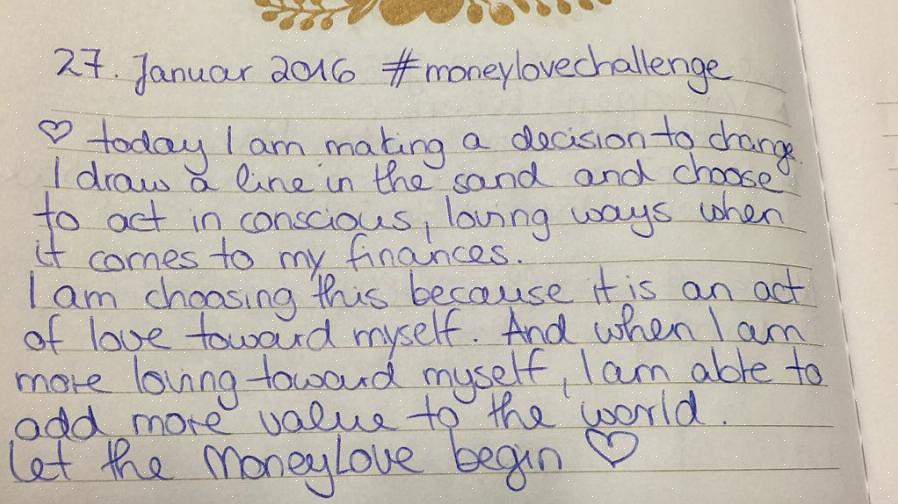 27. Januar 2016 #moneylovechallenge
♡ today I am making a decision to change.
I draw a line in the sand and choose
to act in conscious, loving ways when
it comes to my finances.
I am choosing this because it is an act
of love toward myself. And when I am
more loving toward myself, I am able to
add more value to the world.
Let the MoneyLove begin ♡